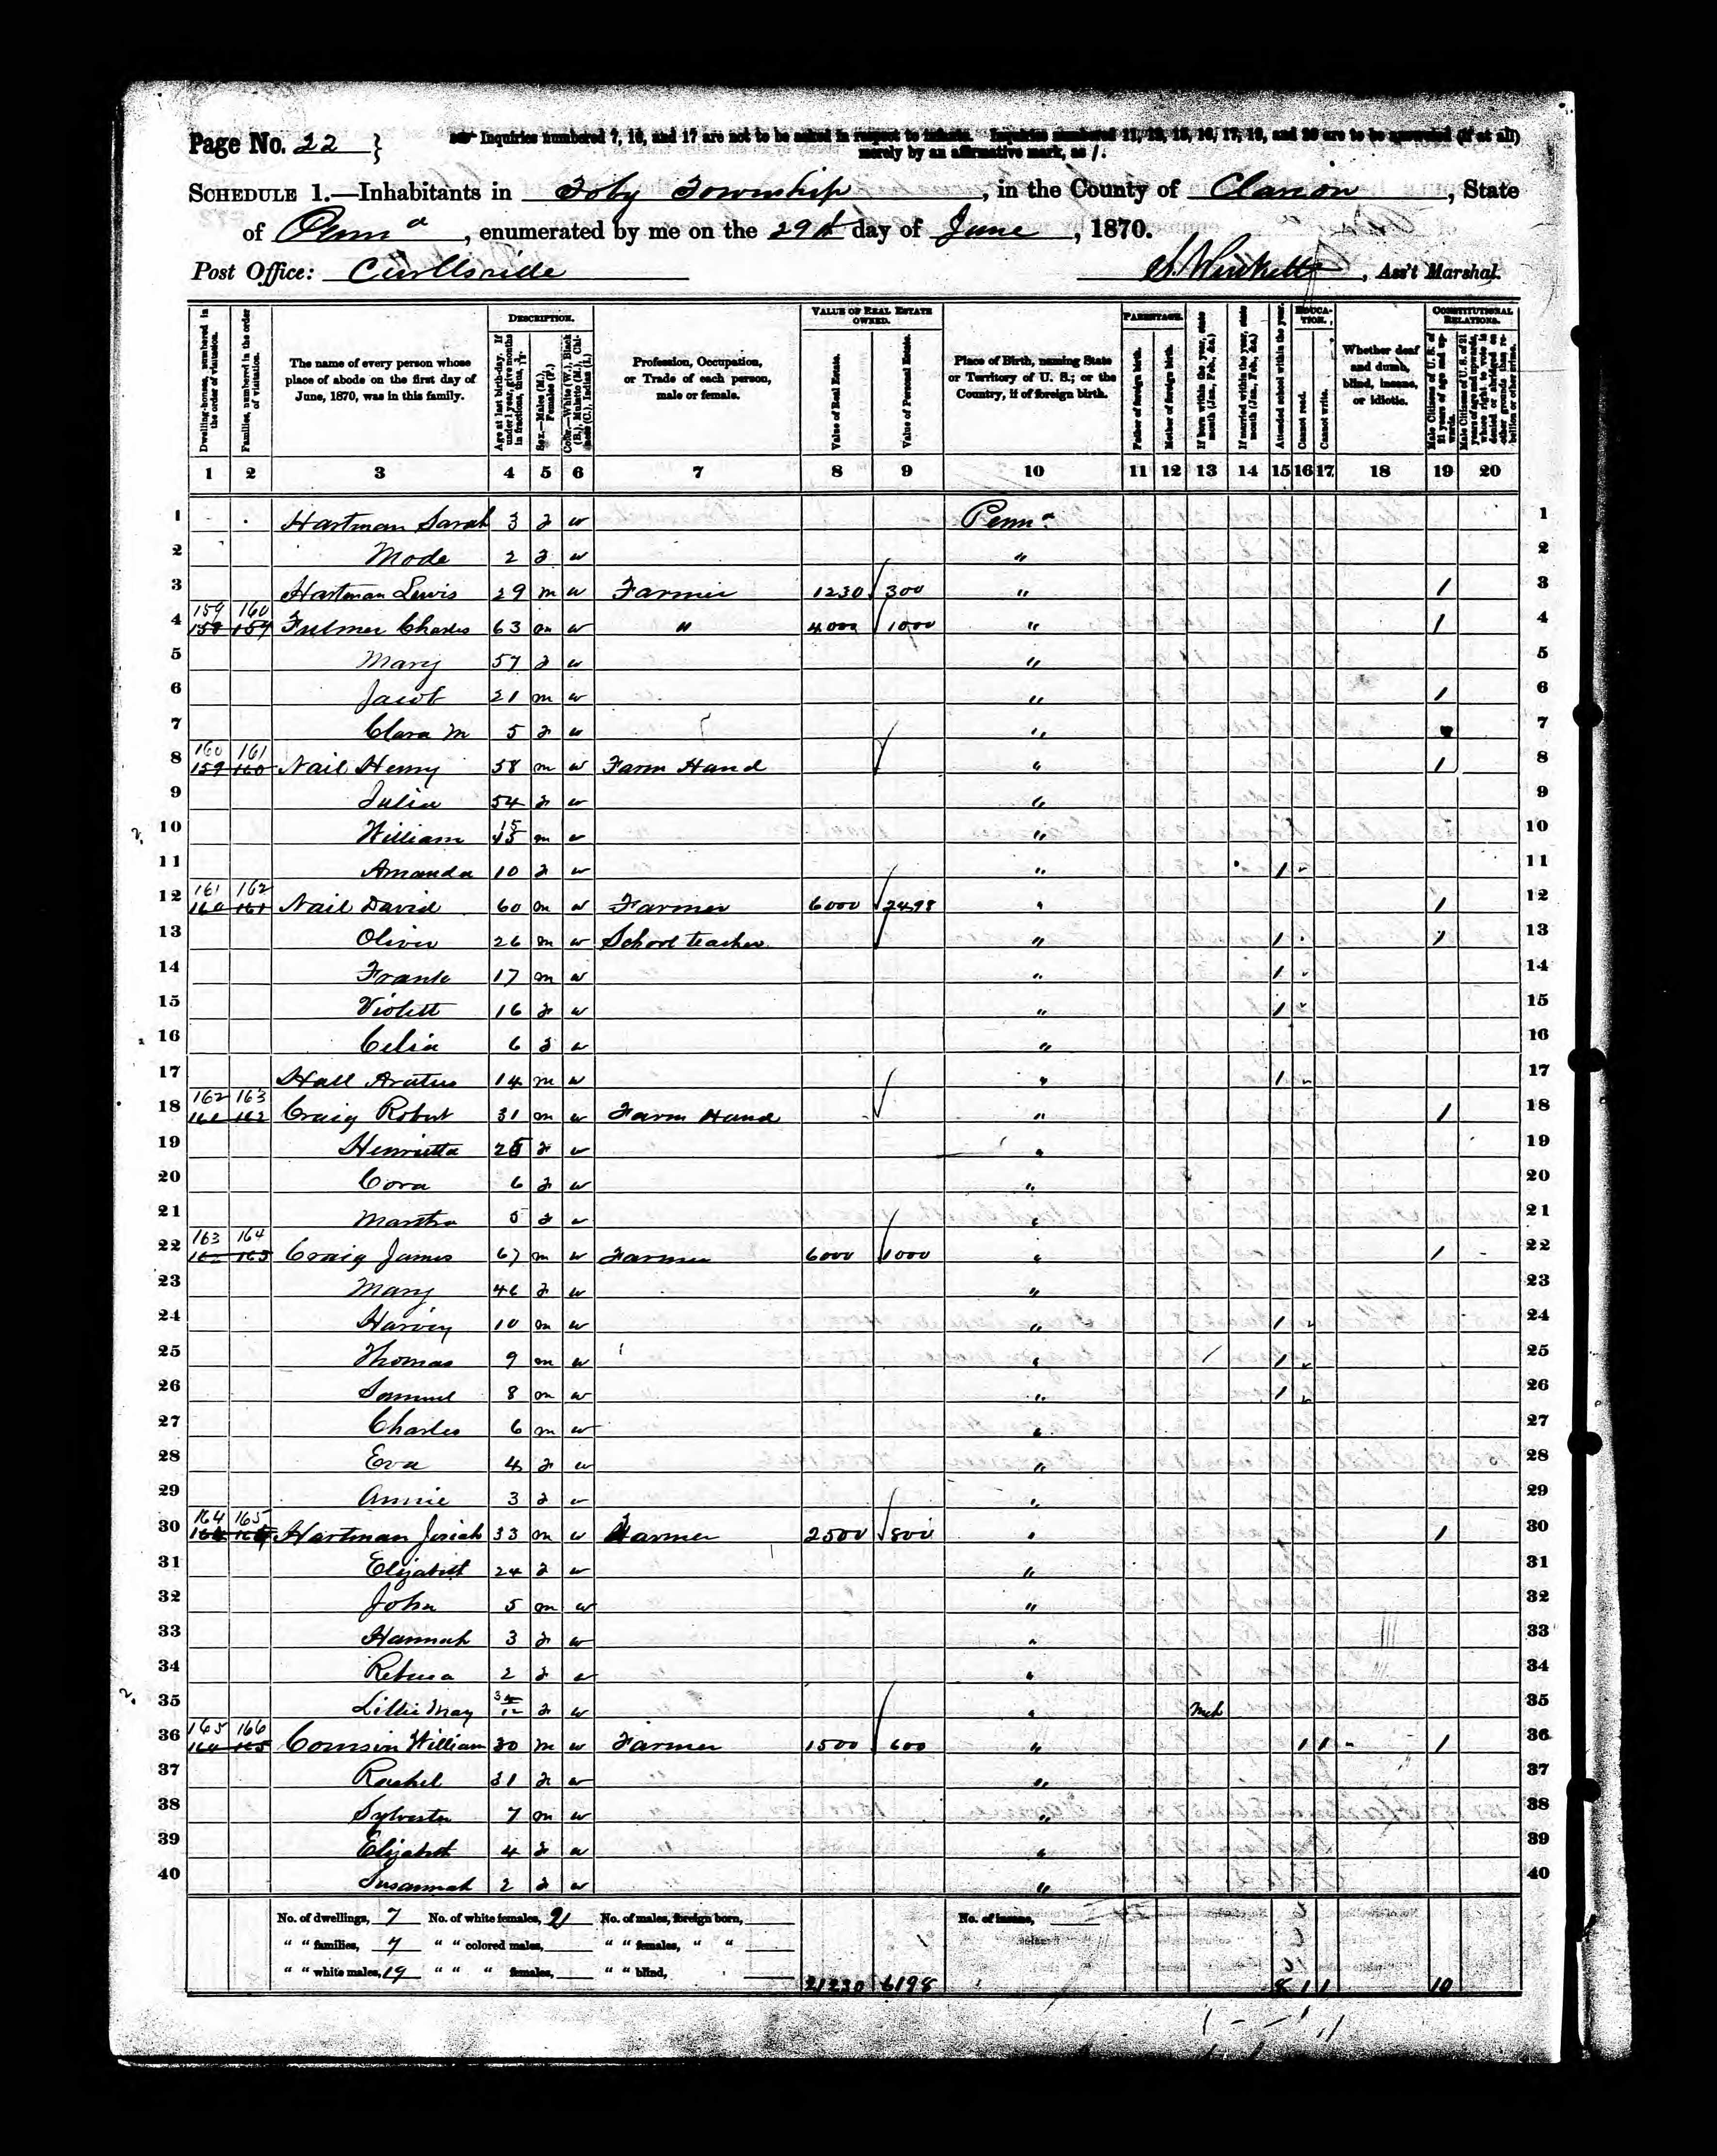 Page No. 22 }
Inquiries numbered 7, 16, and 17 are not to be asked in respect to infants. Inquiries numbered 11, 12, 15, 16, 17, 19, and 20 are to be answered (if at all)
merely by an affirmative mark, as /.
SCHEDULE 1.—Inhabitants in Toby Township, in the County of Clarion, State
of Penna, enumerated by me on the 29th day of June, 1870.
Post Office: Curllsville
, Ass't Marshal.
DESCRIPTION. VALUE OF REAL ESTATE OWNED. PARENTAGE. EDUCATION. CONSTITUTIONAL RELATIONS.
Dwelling-houses, numbered in the order of visitation. Families, numbered in the order of visitation. The name of every person whose place of abode on the first day of June, 1870, was in this family. Age at last birth-day. If under 1 year, give months in fractions, thus, Sex.—Males (M.), Females (F.) Color.—White (W.), Black (B.), Mulatto (M.), Chinese (C.), Indian (I.) Profession, Occupation, or Trade of each person, male or female. Value of Real Estate. Value of Personal Estate. Place of Birth, naming State or Territory of U. S.; or the Country, if of foreign birth. Father of foreign birth. Mother of foreign birth. If born within the year, state month (Jan., Feb., &c.) If married within the year, state month (Jan., Feb., &c.) Attended school within the year. Cannot read. Cannot write. Whether deaf and dumb, blind, insane, or idiotic. Male Citizens of U. S. of 21 years of age and upwards. Male Citizens of U. S. of 21 years of age and upwards, whose right to vote is denied or abridged on other grounds than rebellion or other crime.
1 2 3 4 5 6 7 8 9 10 11 12 13 14 15 16 17 18 19 20
1 Hartman Sarah 3 f w Penna 1
2 Mode 2 f w " 2
3 Hartman Lewis 29 m w Farmer 1230 300 " / 3
159 160
4 158 159 Fulmer Charles 63 m w " 4000 1000 " / 4
5 Mary 57 f w " 5
6 Jacob 21 m w " / 6
7 Clara M 5 f w " 7
160 161
8 159 160 Nail Henry 58 m w Farm Hand " / 8
9 Julia 54 f w " 9
10 William 15 m w " 10
11 Amanda 10 f w " / 11
161 162
12 160 161 Nail David 60 m w Farmer 6000 2498 " / 12
13 Oliver 26 m w School teacher " / / 13
14 Frank 17 m w " / 14
15 Violett 16 f w " / 15
16 Celia 6 f w " 16
17 Hall 14 m w " / 17
162 163
18 161 162 Craig Robert 31 m w Farm Hand " / 18
19 Henrietta 25 f w " 19
20 Cora 6 f w " 20
21 Martha 5 f w " 21
163 164
22 162 163 Craig James 67 m w Farmer 6000 1000 " / 22
23 Mary 46 f w " 23
24 Harvey 10 m w " / 24
25 Thomas 9 m w " / 25
26 Samuel 8 m w " / 26
27 Charles 6 m w " 27
28 Eva 4 f w " 28
29 Annie 3 f w " 29
164 165
30 164 Hartman Josiah 33 m w Farmer 2500 800 " / 30
31 Elizabeth 24 f w " 31
32 John 5 m w " 32
33 Hannah 3 f w " 33
34 Rebecca 2 f w " 34
35 Lillie May 3/12 f w " Mch 35
165 166
36 164 165 William 30 m w Farmer 1500 600 " 1 1 / 36
37 Rachel 31 f w " 37
38 Sylvester 7 m w " 38
39 Elizabeth 4 f w " 39
40 Susannah 2 f w " 40
No. of dwellings, 7 No. of white females, 21 No. of males, foreign born, No. of insane,
" " families, 7 " " colored males, " " females, " "
" " white males, 19 " " " females, " " blind,
21230 6198 8 1 1 10